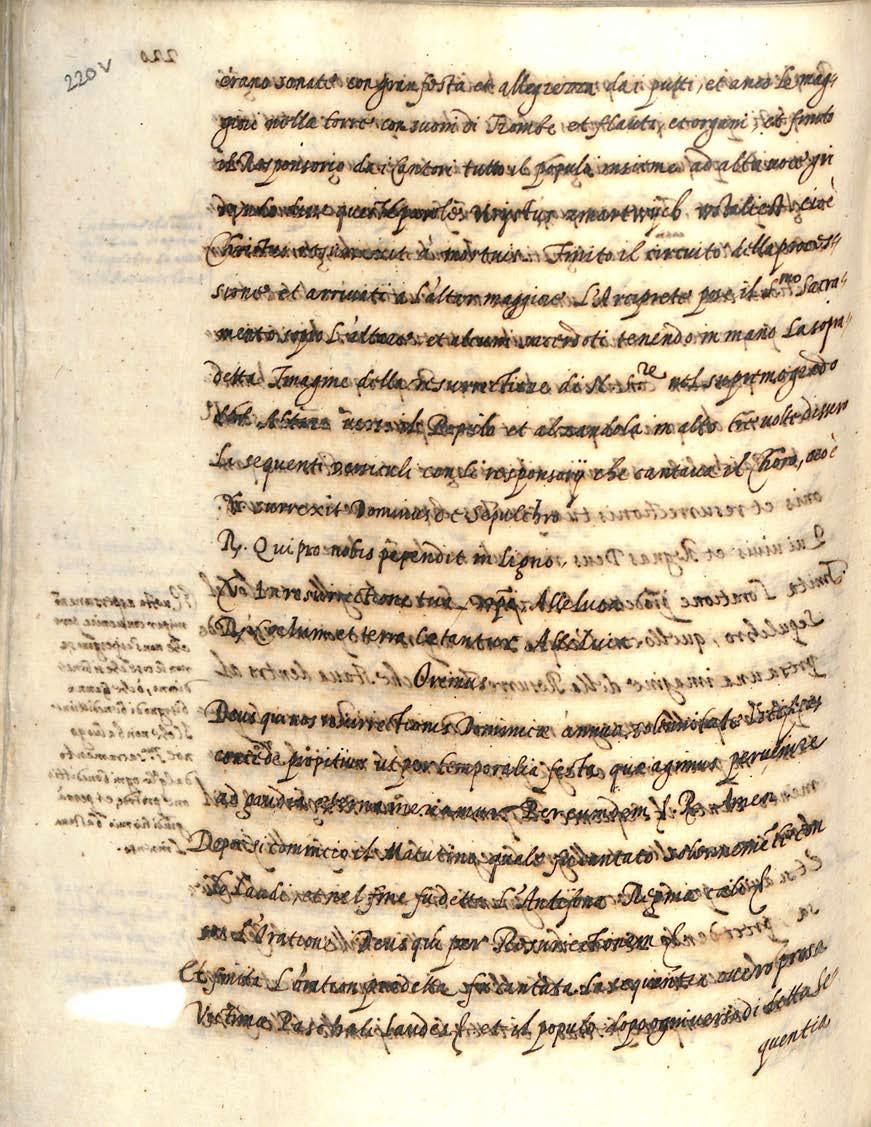 220V
erano sonate con gran festa et allegrezza da i putti, et anco le mag-
giori nella torre con suoni di Trombe et flauti, et organi, et finito
il Responsorio da i Cantori tutto il populo insieme ad alta voce gri
dando disse queste parole Kristus zmartwijch wstaliest cioè
Christus resurrexit à mortuis. Finito il circuito della proces-
sione et arrivati a L'altar maggiore L'Arciprete pose il S.mo Sacra-
mento sopra L'altare et alcuni sacerdoti tenendo in mano La sopra-
detta Imagine della resurrettione di N. S.re nel supremo grado
del Altare verso il Popolo et alzandola in alto tre volte dissero
La sequenti versiculi con li responsorij che cantava il Choro, cioè
℣. Surrexit Dominus de Sepulchro
℟. Qui pro nobis pependit in Ligno.
℣. In resurrectione tua Xpē Alleluia
℟. Coelum et terra Laetantur Alleluia
Oremus
Deus qui nos resurrectionis Dominicae annua solennitate laetificas
concede propitius ut per temporalia festa quae agimus pervenire
ad gaudia aeterna mereamur. Per eundem &. ℟. Amen
Depoi si cominciò il Matutino, quale fu cantato solennemente con
le Laudi, et nel fine fu detta L'Antifona Regina caeli &
con L'Oratione Deus qui per Resurrectionem &
Et finita L'oration predetta fu cantata La sequentia overo prosa
Victimae Paschali laudes &. et il populo dopo ogni verso di detta Se-
quentia